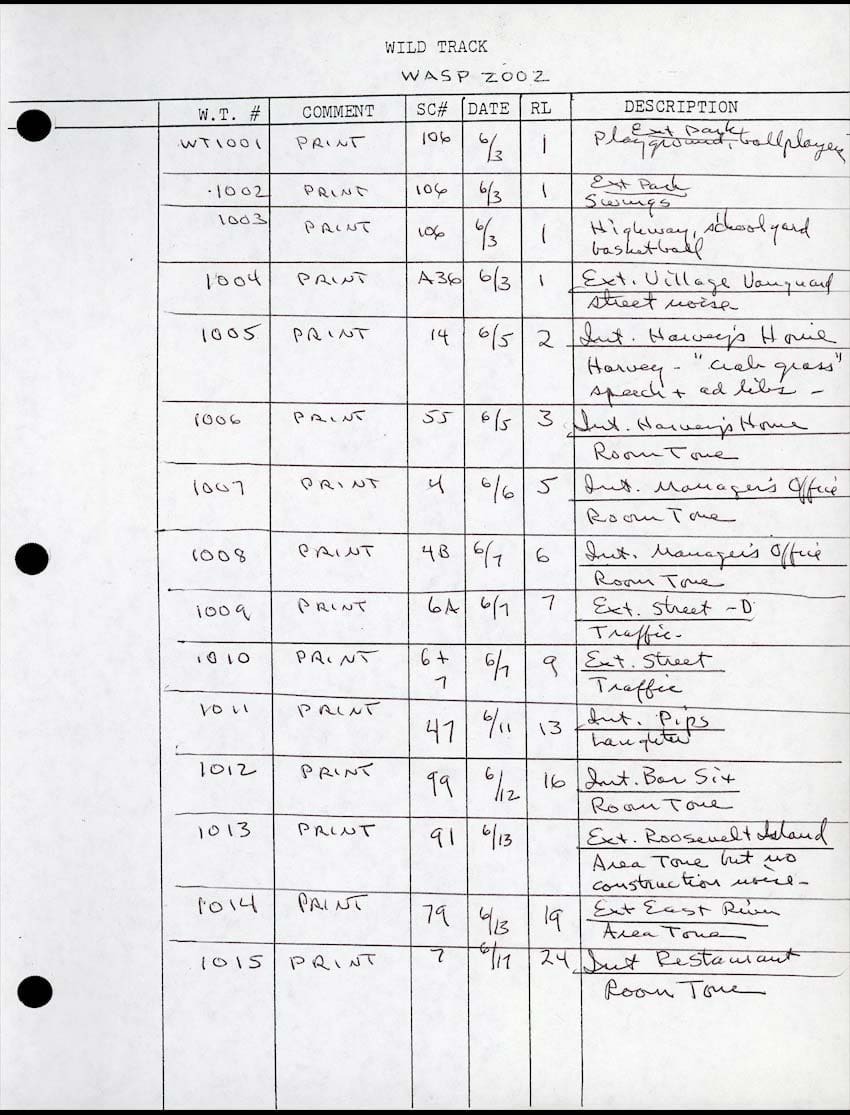 WILD TRACK
WASP 2002
W.T. # COMMENT SC# DATE RL DESCRIPTION
WT1001 PRINT 106 6/3 1 Ext Park
Playground, ballplayer
1002 PRINT 106 6/3 1 Ext Park
Swings
1003 PRINT 106 6/3 1 Highway, schoolyard
basketball
1004 PRINT A36 6/3 1 Ext. Village Vanguard
street noise
1005 PRINT 14 6/5 2 Int. Harvey's Home
Harvey - "crab grass"
speech + ad libs -
1006 PRINT 55 6/5 3 Int. Harvey's Home
Room Tone
1007 PRINT 4 6/6 5 Int. Manager's Office
Room Tone
1008 PRINT 4B 6/7 6 Int. Manager's Office
Room Tone
1009 PRINT 6A 6/7 7 Ext. Street - D
Traffic -
1010 PRINT 6 + 6/7 9 Ext. Street
7 Traffic
1011 PRINT 47 6/11 13 Int. Pips
Laughter
1012 PRINT 99 6/12 16 Int. Bar Six
Room Tone
1013 PRINT 91 6/13 Ext. Roosevelt Island
Area Tone but no
construction noise -
1014 PRINT 79 6/13 19 Ext East River
Area Tone
1015 PRINT 7 6/17 24 Int Restaurant
Room Tone